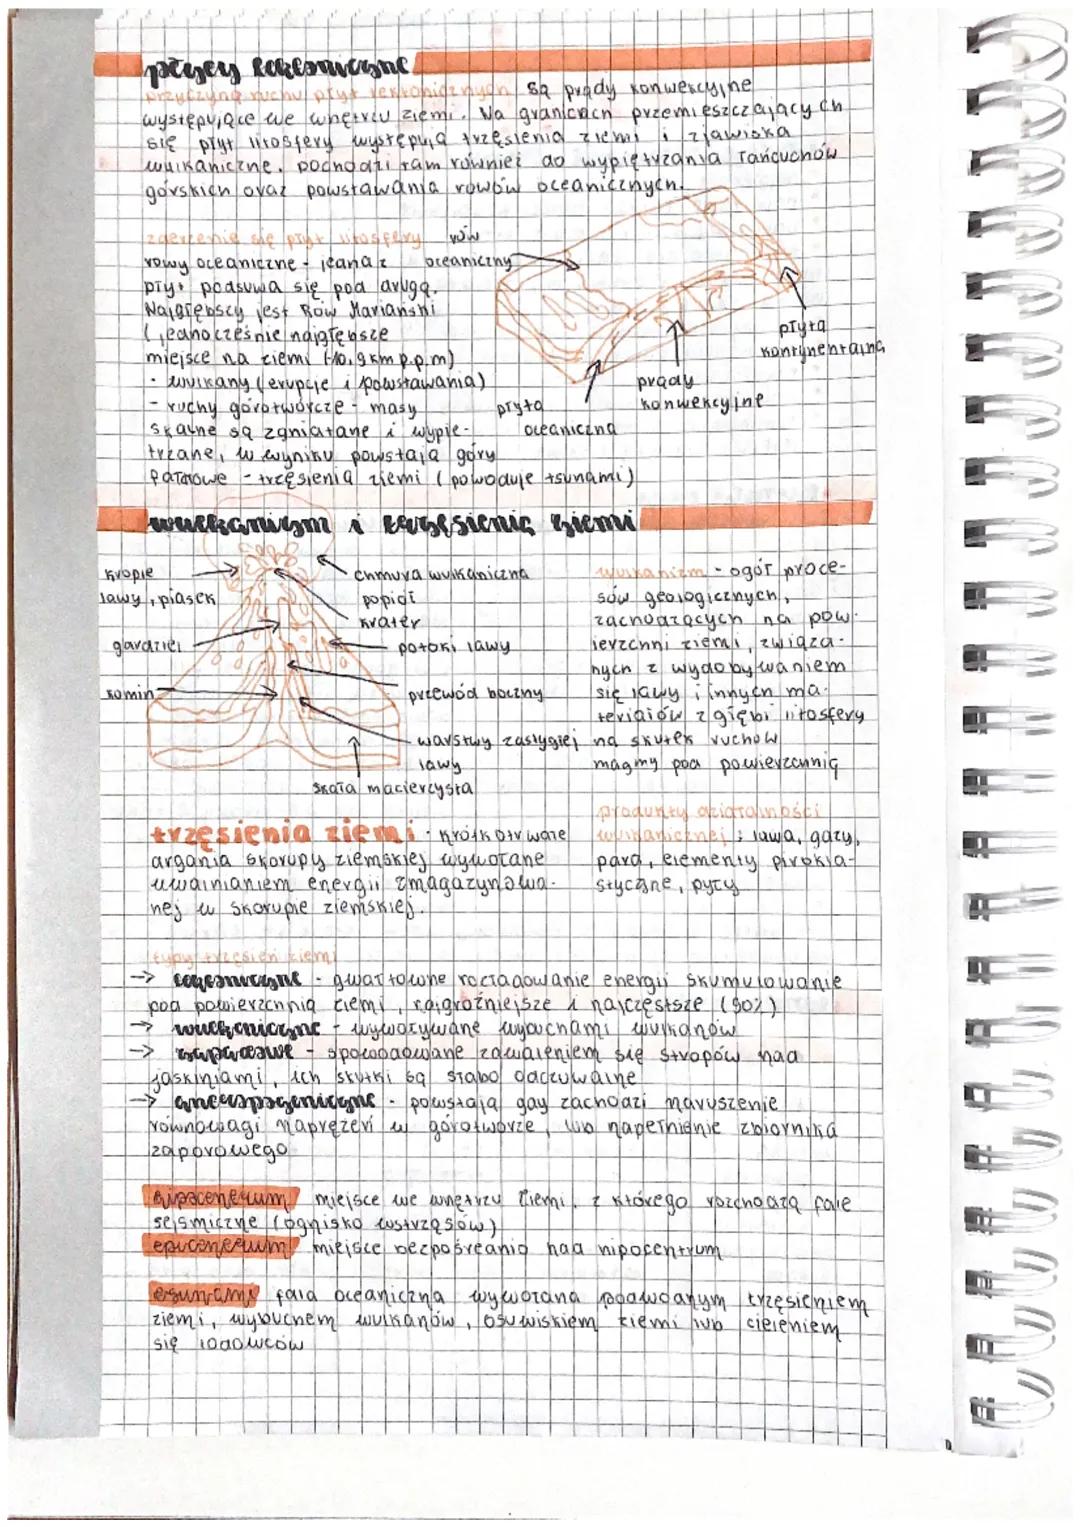 płyty tektoniczne
przyczyną ruchu płyt tektonicznych są prądy konwekcyjne
występujące we wnętrzu ziemi. Na granicach przemieszczających
się płyt litosfery występują trzęsienia ziemi i zjawiska
wulkaniczne. Dochodzi tam również do wypiętrzania łańcuchów
górskich oraz powstawania rowów oceanicznych.
zderzenie się płyt litosfery
rowy oceaniczne - jedna z
płyt podsuwa się pod drugą.
Najgłębszy jest Rów Mariański
(jednocześnie najgłębsze
miejsce na ziemi (-10,9km p.p.m)
- wulkany (erupcje i powstawania)
- ruchy górotwórcze - masy
skalne są zgniatane i wypię-
trzane, w wyniku powstają góry
fałdowe - trzęsienia ziemi (powoduje tsunami)
rów
oceaniczny
płyta
kontynentalna
prądy
konwekcyjne
płyta
oceaniczna
wulkanizm i trzęsienia ziemi
krople
lawy, piasek
gardziel
komin
chmura wulkaniczna
popiół
krater
potoki lawy
przewód boczny
warstwy zastygłej
lawy
skała macierzysta
wulkanizm - ogół proce-
sów geologicznych,
zachodzących na pow-
ierzchni ziemi, związa-
nych z wydobywaniem
się lawy i innych ma-
teriałów z głębi litosfery
na skutek ruchów
magmy pod powierzchnią
produkty działalności
wulkanicznej: lawa, gazy,
para, elementy pirokla-
styczne, pyły
trzęsienia ziemi - krótkotrwałe
drgania skorupy ziemskiej wywołane
uwalnianiem energii zmagazynowa-
nej w skorupie ziemskiej.
typy trzęsień ziemi
→ tektoniczne - gwałtowne rozładowanie energii skumulowanie
pod powierzchnią ziemi, najgroźniejsze i najczęstsze (90%)
→ wulkaniczne - wywoływane wybuchami wulkanów
→ zapadowe - spowodowane zawaleniem się stropów nad
jaskiniami, ich skutki są słabo odczuwalne
→ antropogeniczne - powstają gdy zachodzi naruszenie
równowagi naprężeń w górotworze, lub napełnianie zbiornika
zaporowego
hipocentrum miejsce we wnętrzu ziemi, z którego rozchodzą fale
sejsmiczne (ognisko wstrząsów)
epicentrum miejsce bezpośrednio nad hipocentrum
tsunami fala oceaniczna wywołana podwodanym trzęsieniem
ziemi, wybuchem wulkanów, osuwiskiem ziemi lub cieleniem
się lodowców